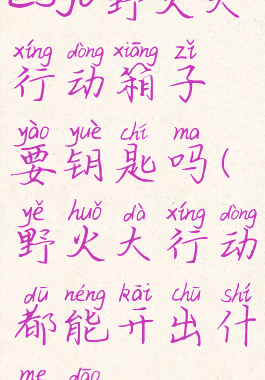 野火大
xíng dòng xiāng zǐ
行动箱子
yào yuè chí ma
要钥匙吗(
yě huǒ dà xíng dòng
野火大行动
dū néng kāi chū shí
都能开出什
me dāo